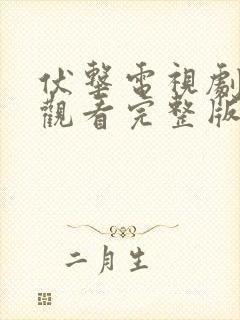 伏擊電視劇
觀看完整版
二月生